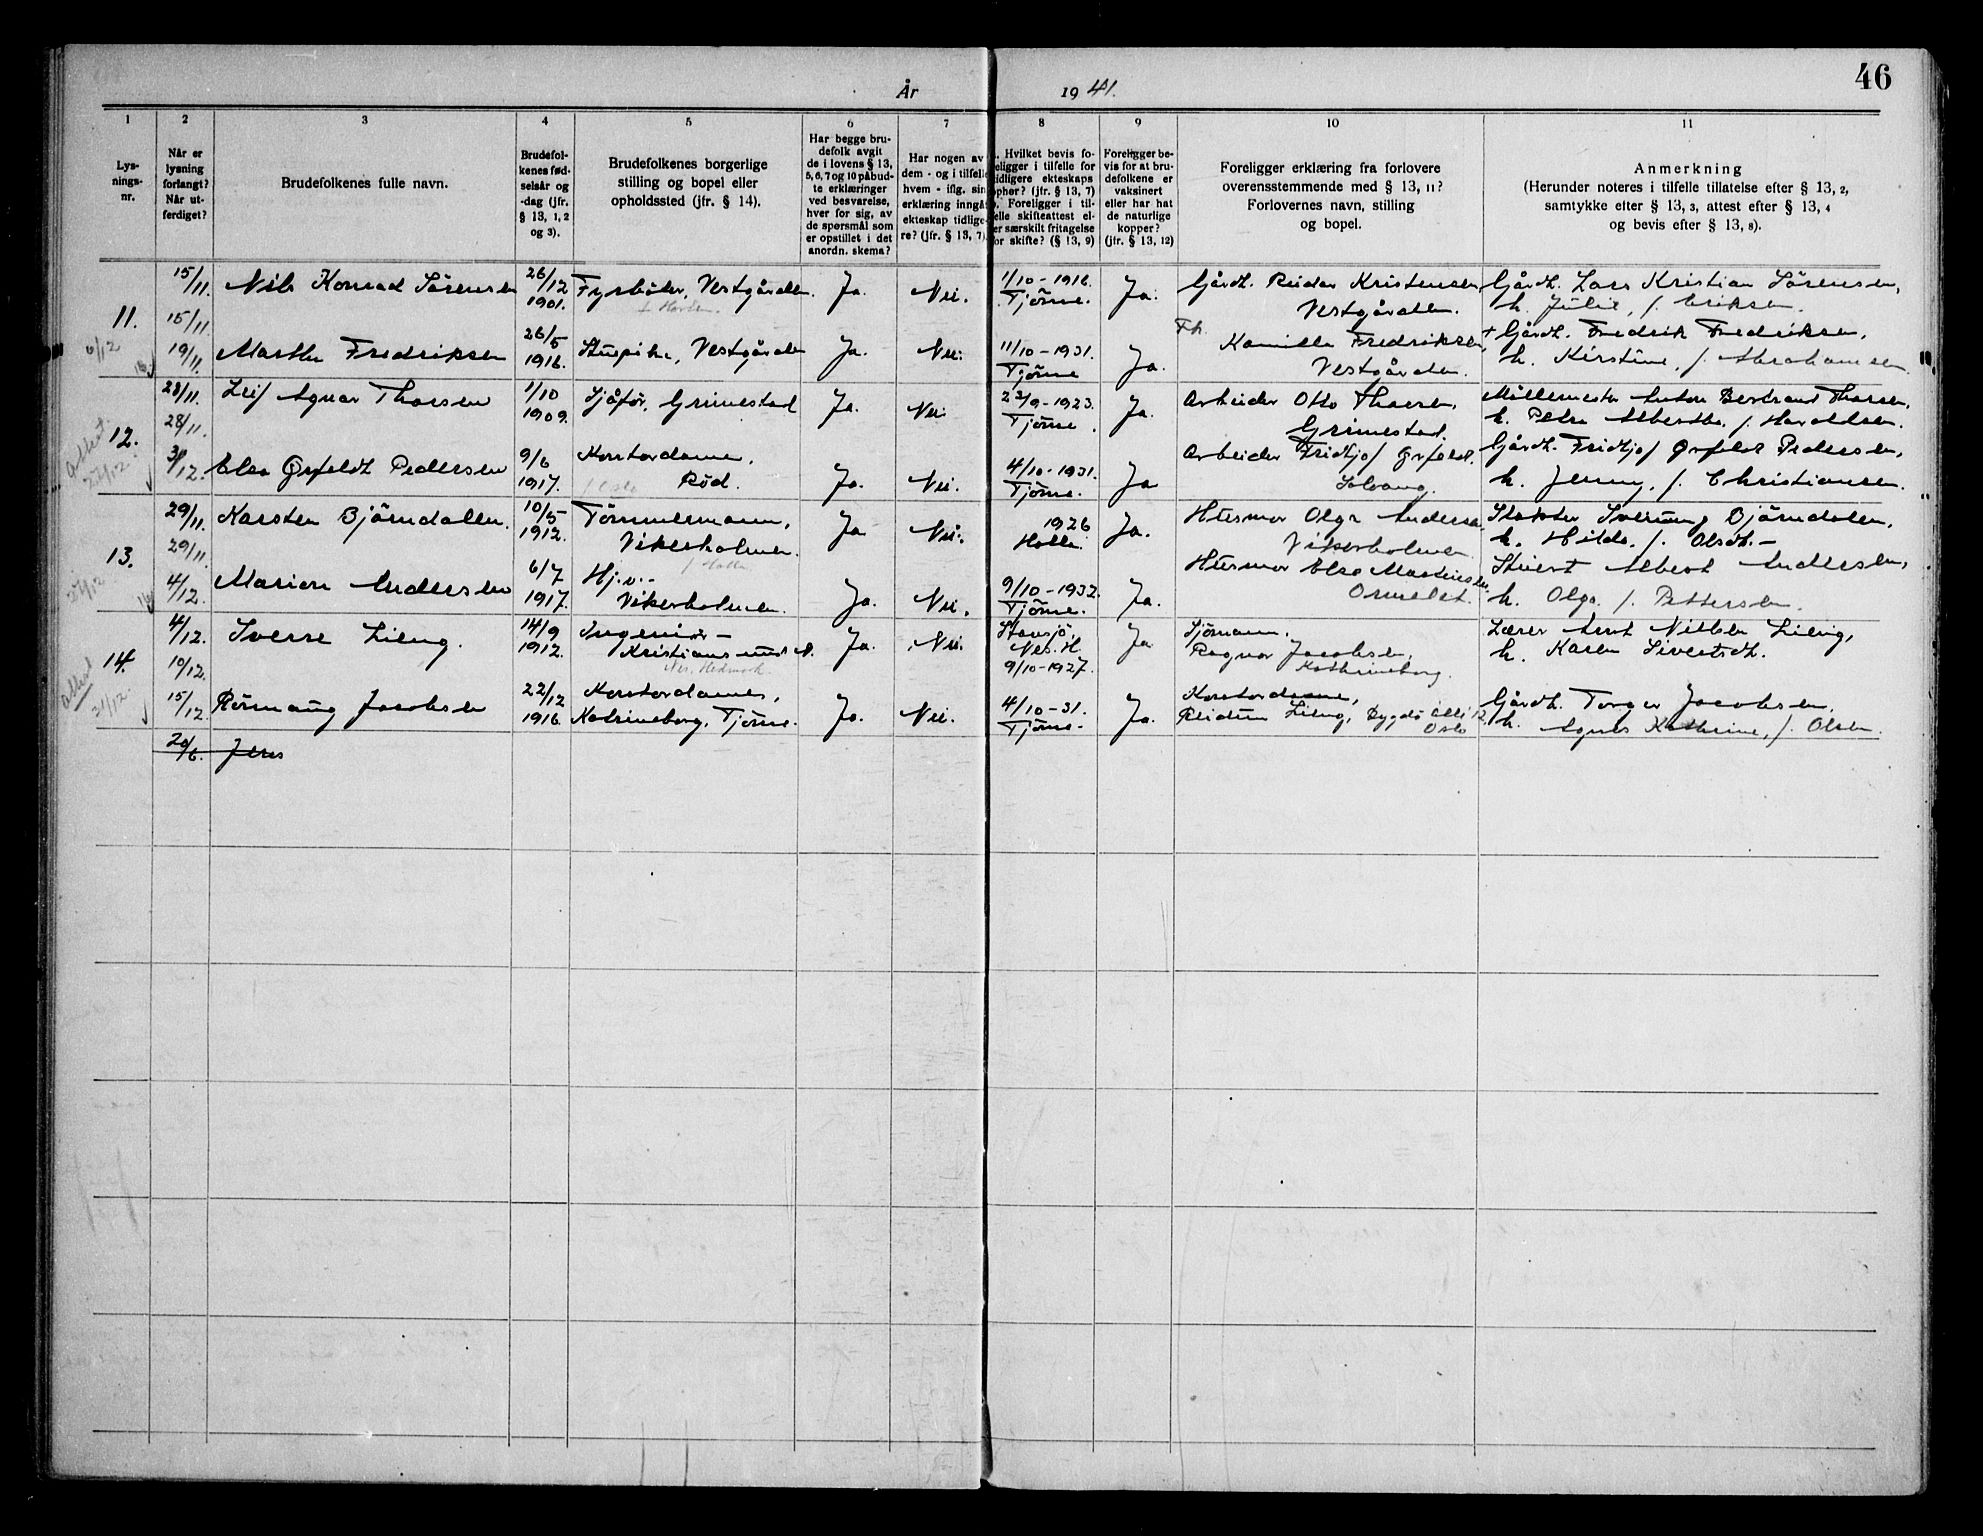 46
År 1941.
1 2 3 4 5 6 7 8 9 10 11
Lys-
nings-
nr.
Når er
lysning
forlangt?
Når ut-
ferdiget?
Brudefolkenes fulle navn.
Brudefol-
kenes fød-
selsår og
-dag (jfr.
§ 13, 1, 2
og 3).
Brudefolkenes borgerlige
stilling og bopel eller
opholdssted (jfr. § 14).
Har begge bru-
defolk avgit
de i lovens § 13,
5, 6, 7 og 10 påbud-
te erklæringer
ved besvarelse,
hver for sig, av
de spørsmål som
er opstillet i det
anordn. skema?
Har nogen av
dem - og i tilfelle
hvem - iflg. sin
erklæring inngå
ekteskap tidlige-
re? (jfr. § 13, 7).
Hvilket bevis fo-
eligger i tilfelle for
idligere ekteskaps
ophør? (jfr. § 13, 7)
Foreligger i til-
elle skifteattest el-
er særskilt fritagelse
or skifte? (§ 13, 9)
Foreligger be-
vis for at bru-
defolkene er
vaksinert
eller har hat
de naturlige
kopper?
(jfr. § 13, 12)
Foreligger erklæring fra forlovere
overensstemmende med § 13, 11?
Forlovernes navn, stilling
og bopel.
Anmerkning
(Herunder noteres i tilfelle tillatelse efter § 13, 2,
samtykke efter § 13, 3, attest efter § 13, 4
og bevis efter § 13, 8).
11.
6/12
15/11.
15/11
Nils Konrad Sørensen
26/12
1901.
Fyrbøter, Vestgården.
Ja.
Nei.
1/10-1916.
Tjöme.
Ja.
Gårdb. Reidar Kristensen,
Vestgården.
Gårdb. Lars Kristian Sörensen,
h. Julie, f. Eriksen.
19/11.
Marthe Fredriksen
26/5
1916.
Stuepike, Vestgården
Ja.
Nei.
11/10-1931.
Tjöme
Ja.
Fh.
Kamilla Fredriksen,
Vestgården.
+ Gårdb. Fredrik Fredriksen,
h. Kirstine, f. Abrahamsen.
12.
Attest
27/12
28/11.
28/11.
Leif Agnar Thorsen
1/10
1909.
Sjåfør, Grimestad
Ja.
Nei
22/9-1923.
Tjöme.
Ja.
Arbeider Otto Thorsen,
Grimestad.
Möllemester Anton Bertrand Thorsen,
h. Petra Albertba, f. Haroldsen.
3/12.
Elsa Ørfeldt Pedersen
9/6
1917.
Kontordame,
f. Oslo Röd.
Ja.
Nei.
4/10-1931.
Tjöme.
Ja
Arbeider Fridtjof Ørfeldt.
Solvang.
Gårdb. Fridtjof Ørfeldt Pedersen,
h. Jenny, f. Christiansen.
13.
27/12
29/11.
29/11.
Karsten Björndalen.
10/5
1912.
Tömmermann,
Vikerholmen.
f. Holla
Ja
Nei.
1926
Holla.
Ja.
Husmor Olga Andersen,
Vikerholmen
Slakter Sverung Björndalen,
h. Hilda. f. Olsdt. -
4/12.
Marion Andersen
6/7
1917.
Hj.v.-
Vikerholmen.
Ja.
Nei.
9/10-1932.
Tjöme.
Ja.
Husmor Elsa Martinsen
Ormelet.
Stuert Albert Andersen,
h. Olga. f. Pettersen.
14.
Attest
21/12.
4/12.
10/12.
Sverre Lieng.
14/9
1912.
Ingeniör -
Kristiansund N.
Nes. Hedmark
Ja.
Nei.
Stavsjö,
Nes. H
9/10-1927.
Ja
Sjömann.
Ragnar Jacobsen,
Kathrineborg.
Lærer Arnt Nielsen Lieng,
h. Karen Sivertsdt.
15/12.
Rönnaug Jacobsen
22/12
1916
Kontordame,
Katrineborg, Tjöme.
Ja.
Nei.
4/10-31.
Tjöme-
Ja.
Kontordame,
Reidun Lieng, Bygdö allé 12,
Oslo
Gårdb. Torger Jacobsen,
h. Agnes Kathrine, f. Olsen.
20/6. Jens